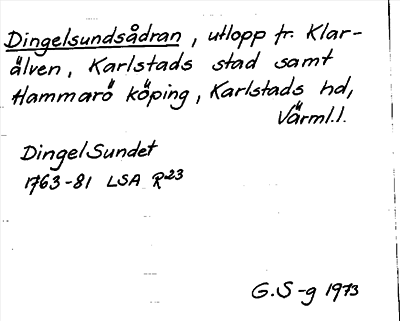 Dingelsundsådran, utlopp fr. Klar-
älven, Karlstads stad samt
Hammarö köping, Karlstads hd,
Värml.l.
DingelSundet
1763-81 LSA R23
G.S-g 1973